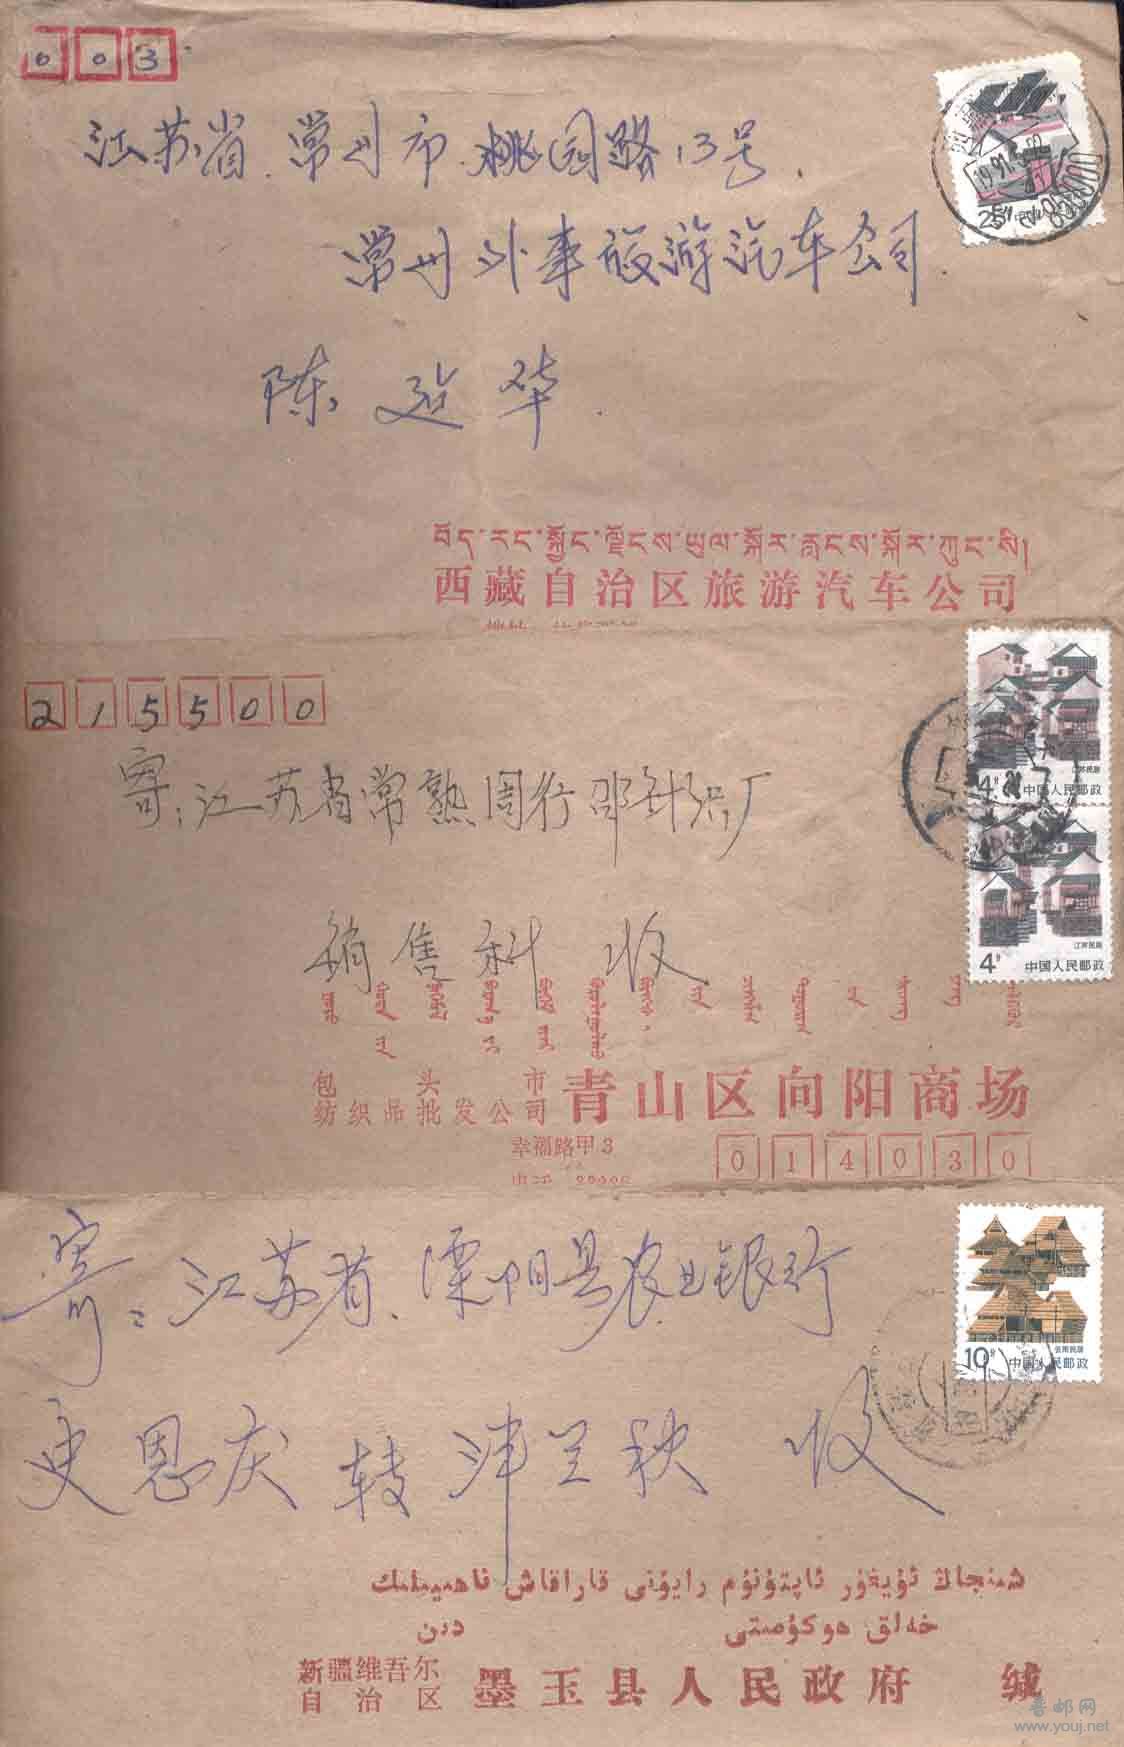 003
江苏省.常州市.桃园路13号.
常州外事旅游汽车公司.
陈 延 华.
བོད་རང་སྐྱོང་ལྗོངས་ཡུལ་སྐོར་རླངས་སྐོར་ཀུང་སི།
西藏自治区旅游汽车公司
215500
寄:江苏省常熟周行邵针织厂
销售科 收
4分 江苏民居
中国人民邮政
4分 江苏民居
中国人民邮政
包头市
纺织品批发公司 青山区向阳商场
幸福路甲3 014030
寄:江苏省.溧阳县农业银行
10分 云南民居
中国人民邮政
史恩庆 转 津兰秋 收
شىنجاڭ ئۇيغۇر ئاپتونوم رايونى قاراقاش ناھىيىلىك
خەلق ھۆكۈمىتى دىن
新疆维吾尔
自治区 墨玉县人民政府 缄
普邮网
www.youj.net